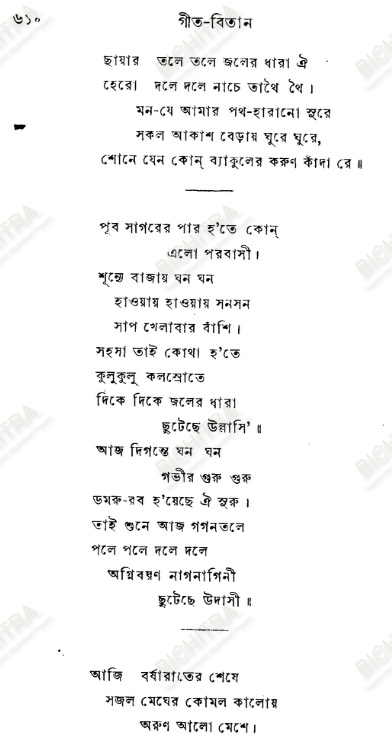 ৬১০
গীত-বিতান
ছায়ার তলে তলে জলের ধারা ঐ
হেরো দলে দলে নাচে তাথৈ থৈ।
মন-যে আমার পথ-হারানো সুরে
সকল আকাশ বেড়ায় ঘুরে ঘুরে,
শোনে যেন কোন্ ব্যাকুলের করুণ কাঁদা রে॥
পূব সাগরের পার হ'তে কোন্
এলো পরবাসী।
শূন্যে বাজায় ঘন ঘন
হাওয়ায় হাওয়ায় সনসন
সাপ খেলাবার বাঁশি।
সহসা তাই কোথা হ'তে
কুলুকুলু কলস্রোতে
দিকে দিকে জলের ধারা
ছুটেছে উল্লাসি'॥
আজ দিগন্তে ঘন ঘন
গভীর গুরু গুরু
ডমরু-রব হ'য়েছে ঐ সুরু।
তাই শুনে আজ গগনতলে
পলে পলে দলে দলে
অগ্নিবরণ নাগনাগিনী
ছুটেছে উদাসী॥
আজি বর্ষারাতের শেষে
সজল মেঘের কোমল কালোয়
অরুণ আলো মেশে।
BICHITRA
BICHITRA
BICHITRA
BICHITRA
BICHITRA
BICHITRA